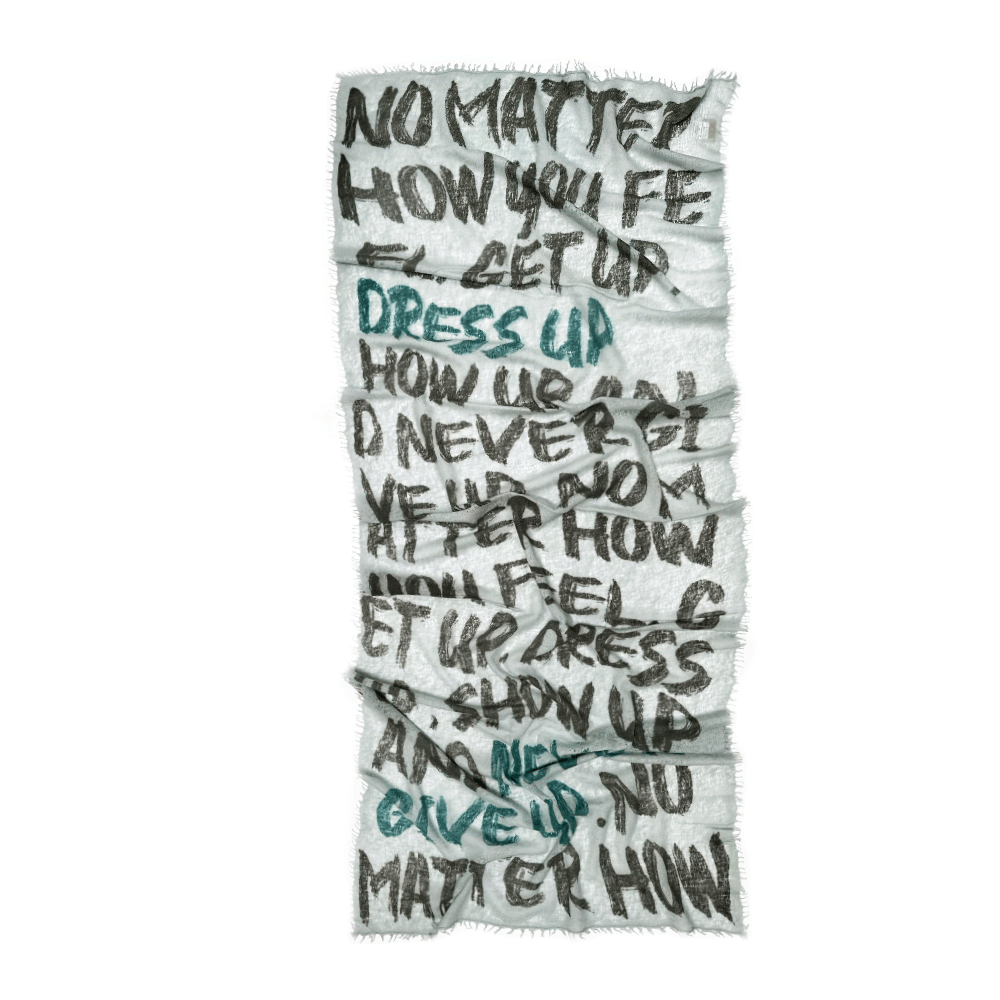 NO MATTER
HOW YOU FE
EL. GET UP.
DRESS UP
HOW UP AN
D NEVER GI
VE UP. NO M
ATTER HOW
YOU FEEL. G
ET UP. DRESS
UP. SHOW UP
AND NEVER
GIVE UP. NO
MATTER HOW